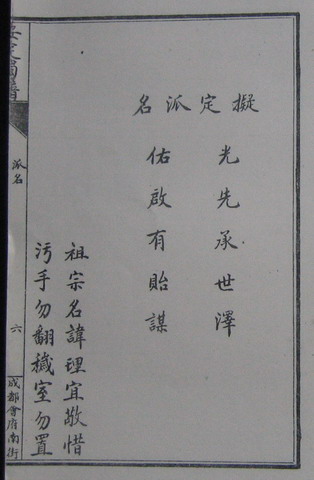 擬定派名
光先承世澤
佑啟有貽謀
祖宗名諱理宜敬惜
污手勿翻穢室勿置
派名
六
成都會府南街